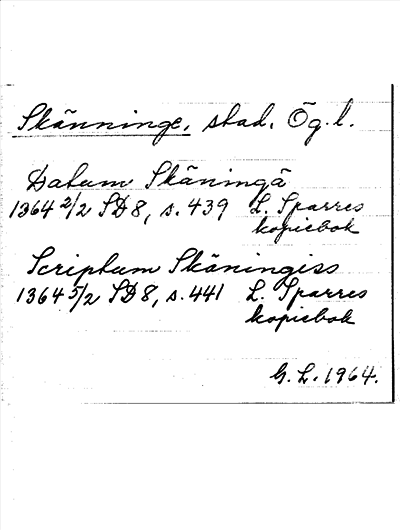 Skänninge, stad. Ög.l.
Datum Skäningä
1364 2/2 SD 8, s. 439 L. Sparres
kopiebok
Scriptum Skäningiss
1364 5/2 SD 8, s. 441 L. Sparres
kopiebok
G. L. 1964.